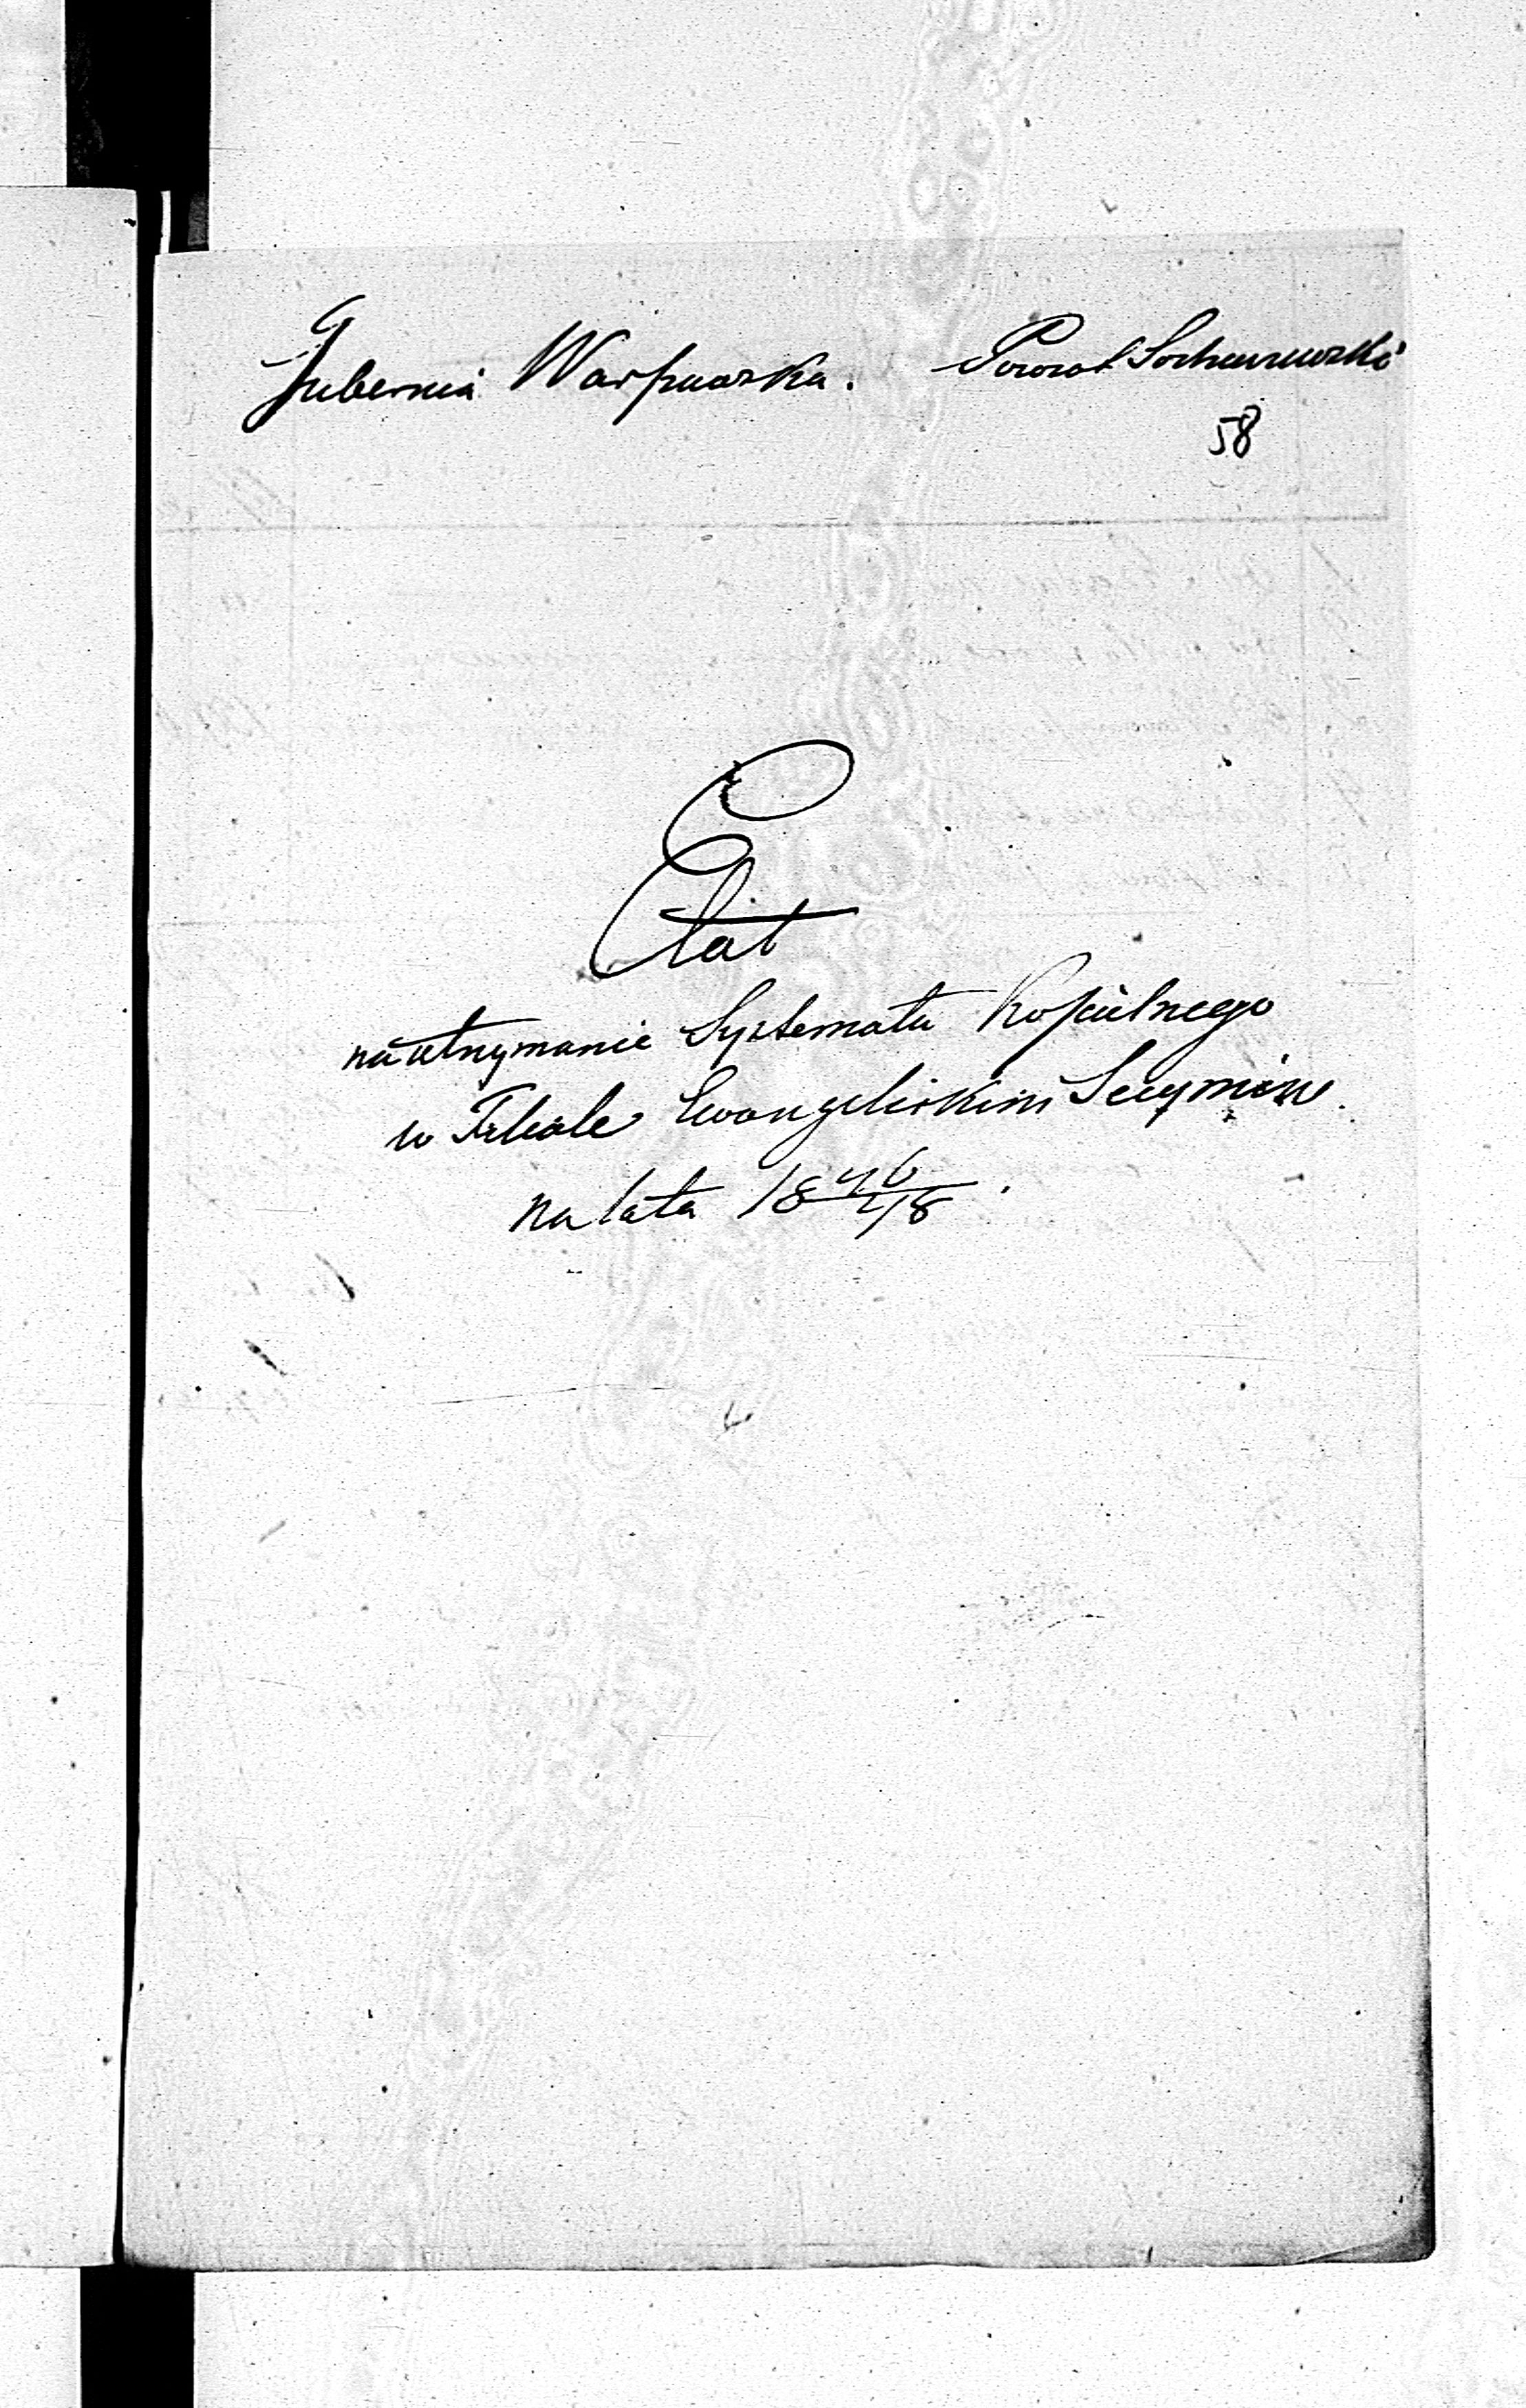 Gubernia Warszawska. Powiat Sochaczewski
58
Etat
na utrzymanie Systemata Kościelnego
w Filiale Ewangelickim Secymin
na lata 18 46/48.